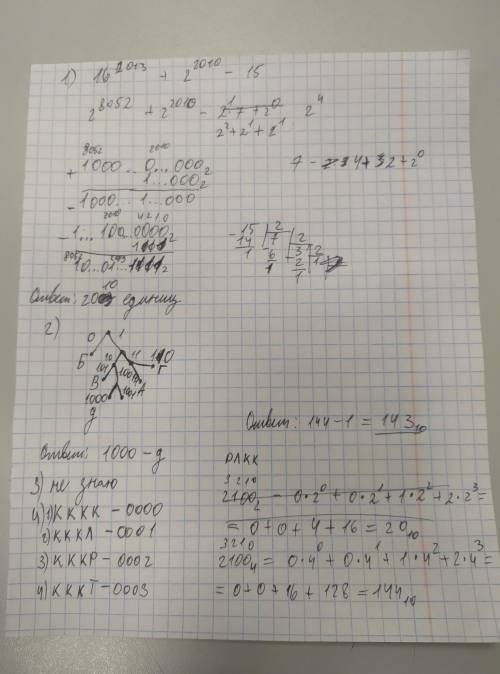 1) 16^2013 + 2^2010 - 15
2^8052 + 2^2010 - 2^1 7 + 2^0 2^4
2^2 + 2^1 + 2^1
8052 2010
+ 1000...0...000₂
1...000₂
- 1000...1...000
2010 4 2 1 0
- 1...100...0000₂
1111
10...01...1111₂
7 - 4+32+2^0
- 15 | 2
14 | 7 | 2
1 - 6 | 3 | 2
1 - 2 | 1
1
Ответ: 2010 единиц
2)
0 1
Б 10 11 110
101 Г
В 1001 А
1000
Д
Ответ: 1000 - д
3) не знаю
4) 1) КККК - 0000
2) КККЛ - 0001
3) КККР - 0002
4) КККТ - 0003
Ответ: 144 - 1 = 143₁₀
РЛКК
3 2 1 0
2100₂ - 0·2^0 + 0·2^1 + 1·2^2 + 2·2^3 =
= 0 + 0 + 4 + 16 = 20₁₀
3 2 1 0
2100₄ = 0·4^0 + 0·4^1 + 1·4^2 + 2·4^3 =
= 0 + 0 + 16 + 128 = 144₁₀